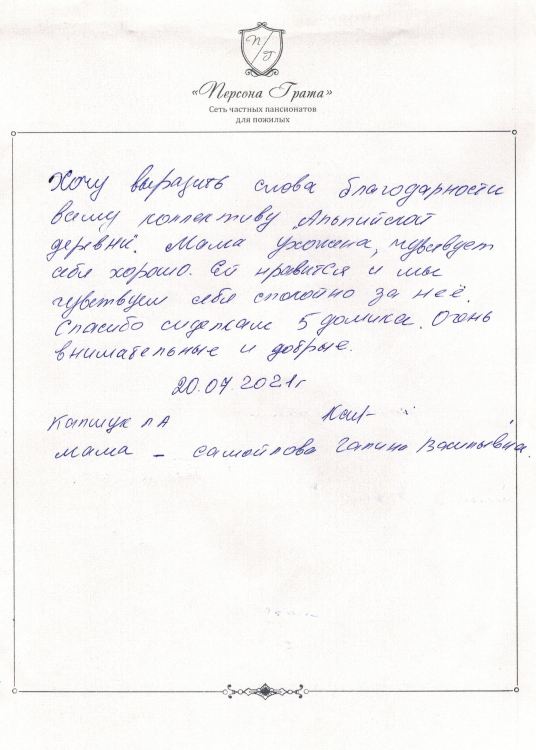 П/Г
«Персона Грата»
Сеть частных пансионатов
для пожилых
Хочу выразить слова благодарности
всему коллективу Альпийской
деревни. Мама ухожена, чувствует
себя хорошо. Ей нравится и мы
чувствуем себя спокойно за неё.
Спасибо сиделкам 5 домика. Очень
внимательные и добрые.
20.07.2021г
Капшук ЛА
мама – Самойлова Галина Васильевна.